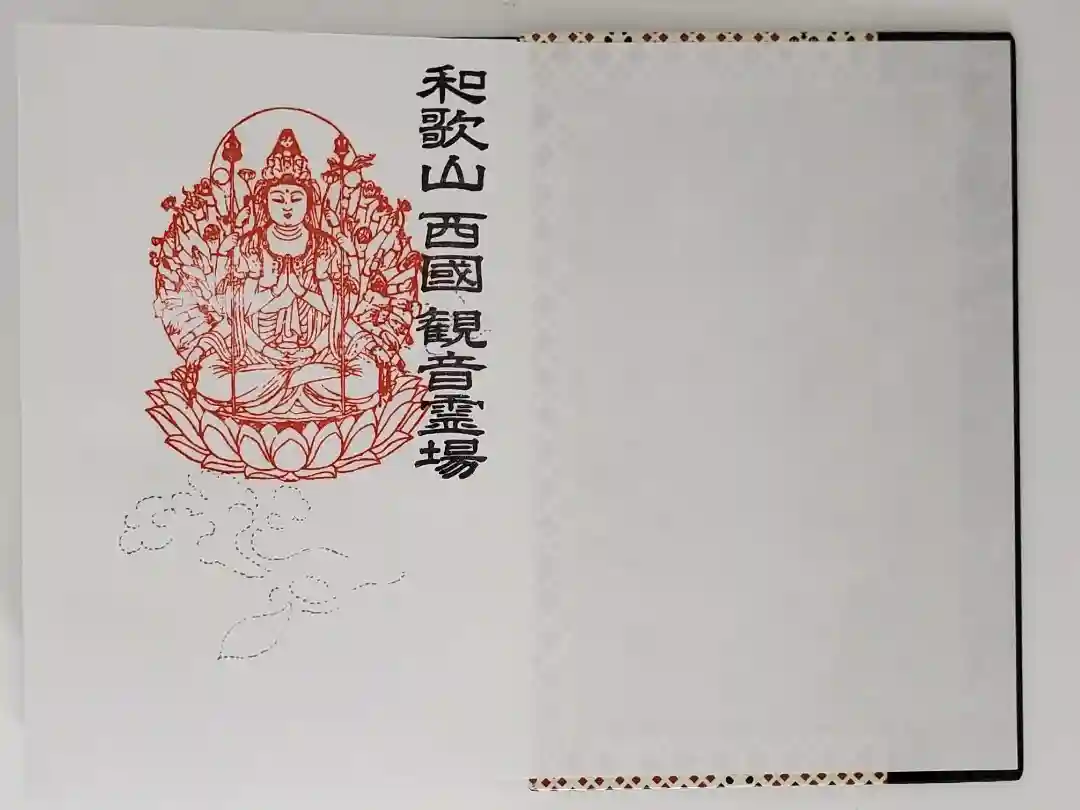 和歌山西國観音霊場